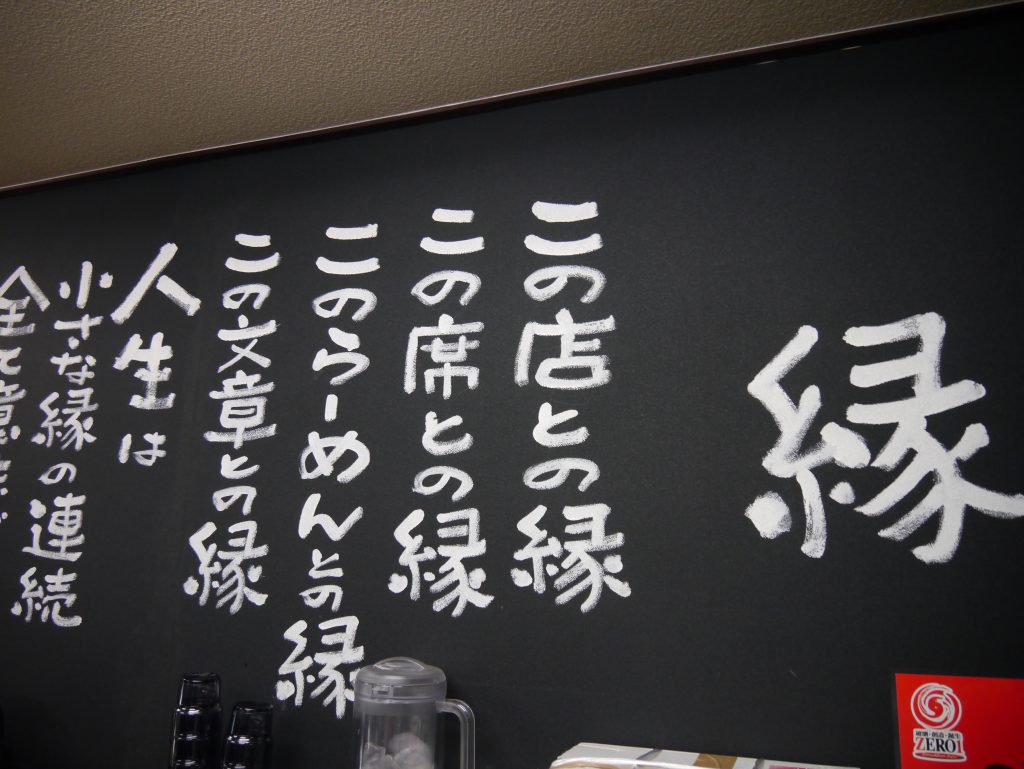 縁
この店との縁
この席との縁
このらーめんとの縁
この文章との縁
人生は
小さな縁の連続
全て意
破壊・創造・誕生
ZERO1